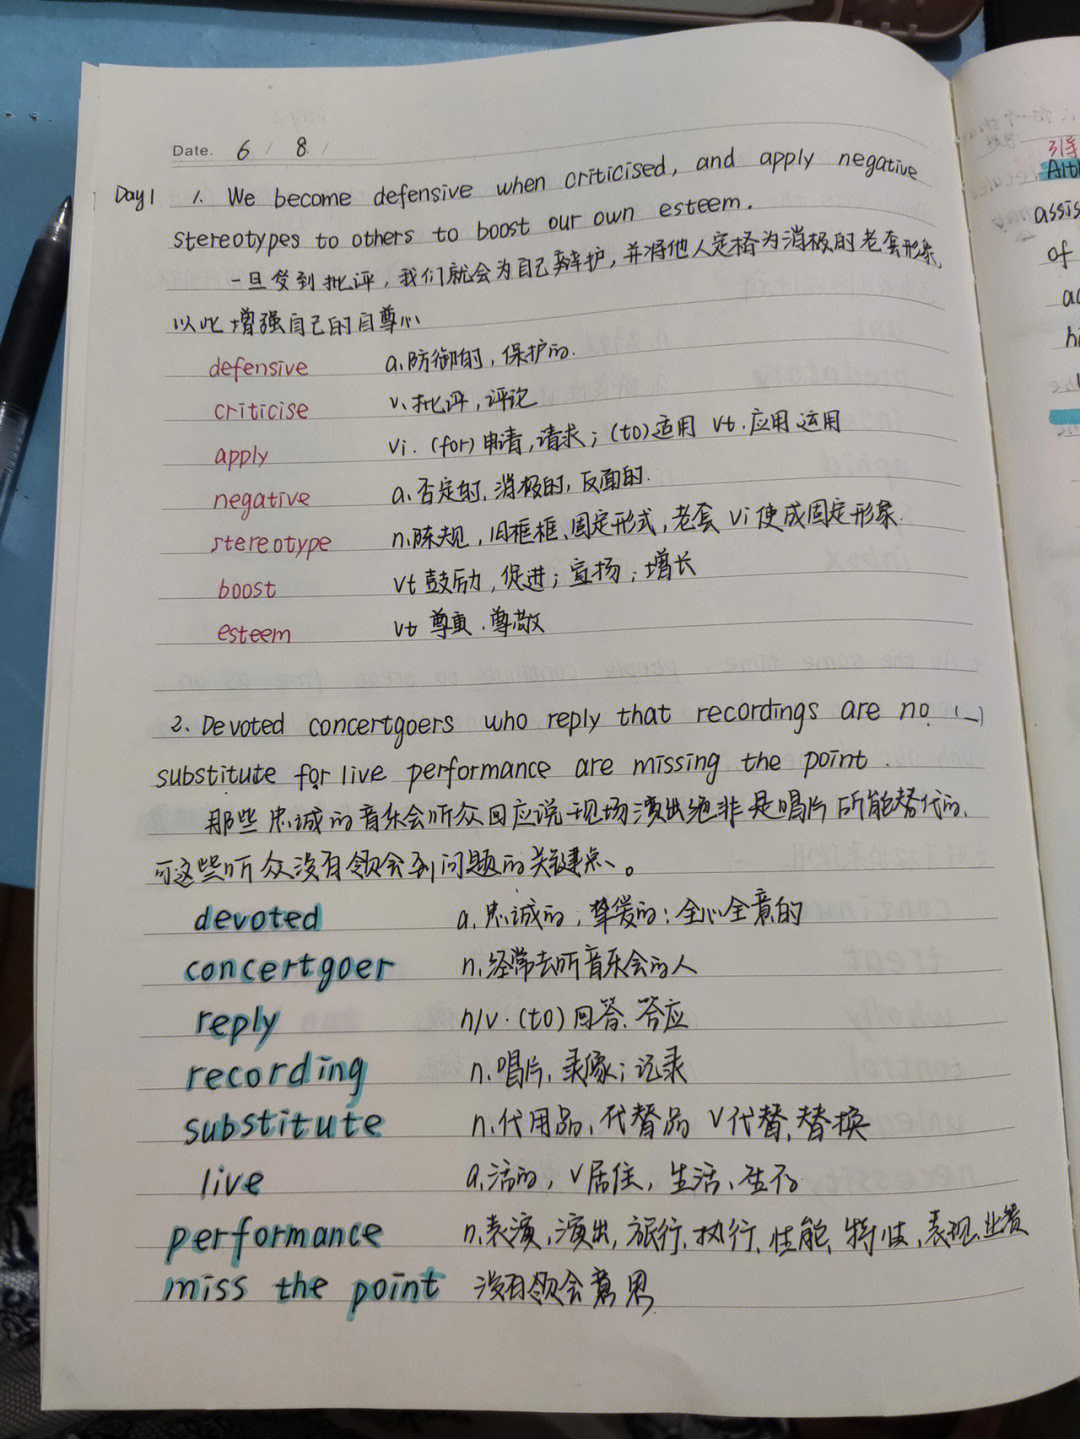 Date. 6 / 8 /
Day1 1. We become defensive when criticised, and apply negative
stereotypes to others to boost our own esteem.
一旦受到批评，我们就会为自己辩护，并将他人定格为消极的老套形象,
以此增强自己的自尊心
defensive a.防御的，保护的.
criticise v.批评，评论
apply vi. (for)申请,请求；(to)适用 vt.应用.运用
negative a.否定的,消极的,反面的.
stereotype n.陈规，旧框框、固定形式，老套 vi使成固定形象.
boost vt鼓励，促进；宣扬；增长
esteem vt 尊重.尊敬
2. Devoted concertgoers who reply that recordings are no
substitute for live performance are missing the point.
那些忠诚的音乐会听众回应说现场演出绝非是唱片所能替代的,
可这些听众没有领会到问题的关键点、。
devoted a.忠诚的，挚爱的；全心全意的
concertgoer n.经常去听音乐会的人
reply n/v.(to)回答、答应
recording n.唱片,录像；记录
substitute n.代用品、代替品 v代替,替换
live a.活的，v居住，生活、生存
performance n.表演,演出,旅行,执行,性能,特性,表现,业绩
miss the point 没有领会意思
引导
Alth
assis
of
ac
h